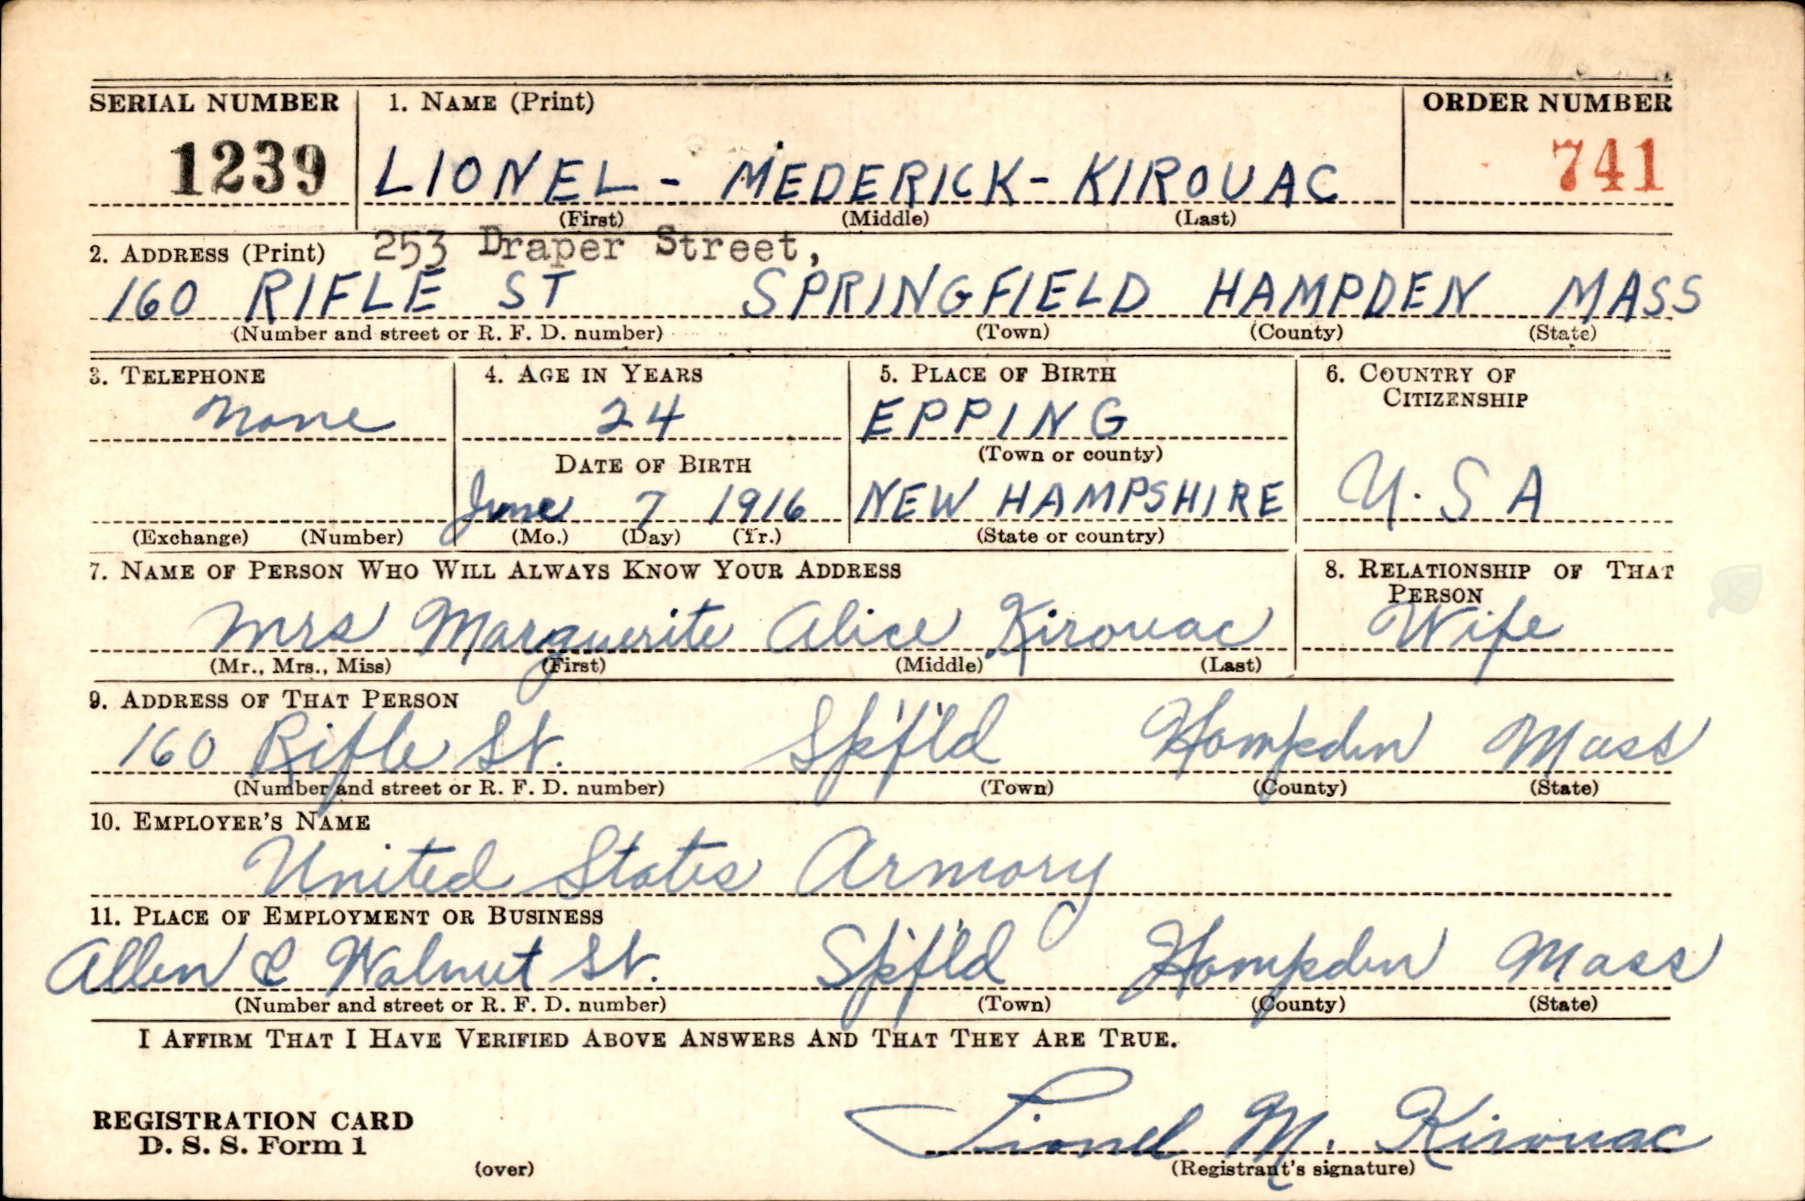 SERIAL NUMBER 1. NAME (Print) ORDER NUMBER
1239 LIONEL - MEDERICK - KIROUAC 741
(First) (Middle) (Last)
2. ADDRESS (Print) 253 Draper Street,
160 RIFLE ST SPRINGFIELD HAMPDEN MASS
(Number and street or R. F. D. number) (Town) (County) (State)
3. TELEPHONE 4. AGE IN YEARS 5. PLACE OF BIRTH 6. COUNTRY OF
CITIZENSHIP
None 24 EPPING
(Town or county)
DATE OF BIRTH
June 7 1916 NEW HAMPSHIRE U.S A
(Exchange) (Number) (Mo.) (Day) (Yr.) (State or country)
7. NAME OF PERSON WHO WILL ALWAYS KNOW YOUR ADDRESS 8. RELATIONSHIP OF THAT
PERSON
Mrs Marguerite Alice Kirouac Wife
(Mr., Mrs., Miss) (First) (Middle) (Last)
9. ADDRESS OF THAT PERSON
160 Rifle St. Sp'f'ld Hampden Mass
(Number and street or R. F. D. number) (Town) (County) (State)
10. EMPLOYER'S NAME
United States Armory
11. PLACE OF EMPLOYMENT OR BUSINESS
Allen & Walnut St. Sp'f'ld Hampden Mass
(Number and street or R. F. D. number) (Town) (County) (State)
I AFFIRM THAT I HAVE VERIFIED ABOVE ANSWERS AND THAT THEY ARE TRUE.
REGISTRATION CARD
D. S. S. Form 1
Lionel M. Kirouac
(over) (Registrant's signature)